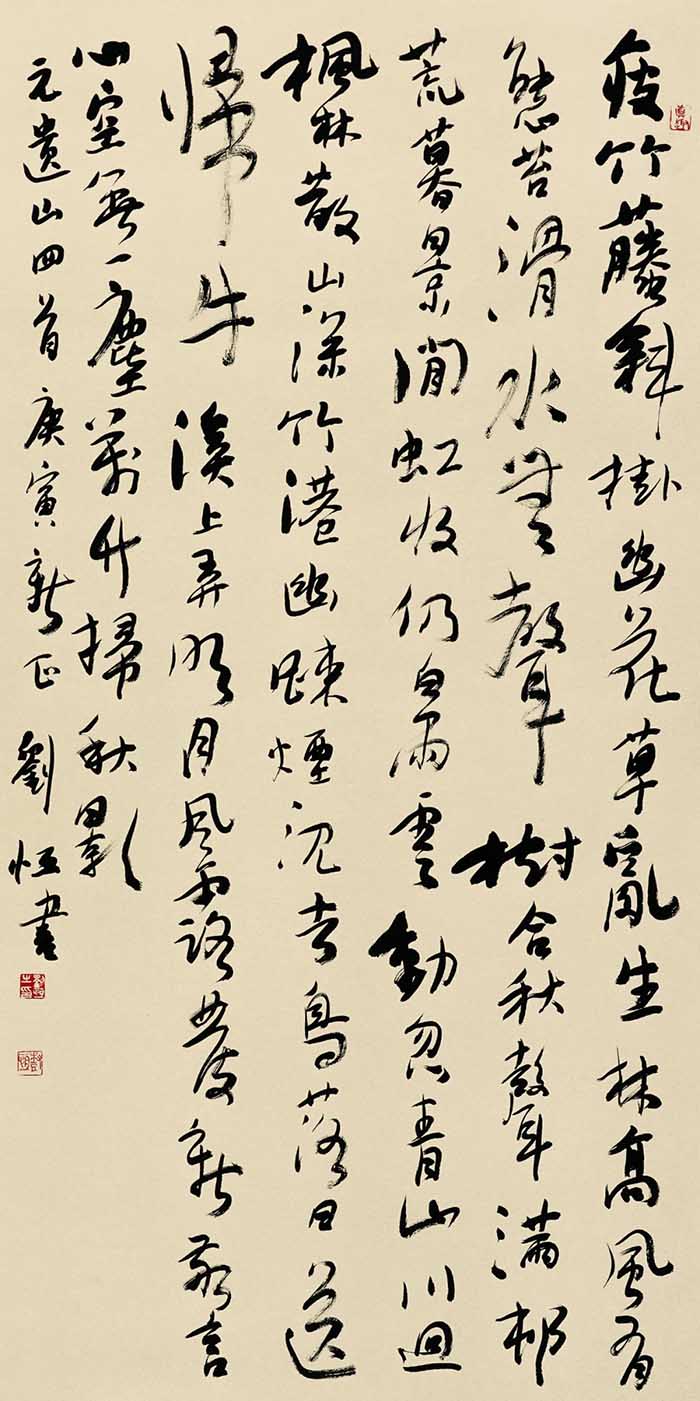 瘦竹藤斜掛幽花草亂生林高風有
態苔滑水無聲樹合秋聲滿村
荒暮景閒虹收仍白雨雲動忽青山川迥
楓林散山深竹港幽疎煙沉去鳥落日送
歸牛溪上弄明月風露發新警
心空無一塵萬竹掃秋影
元遺山四首庚寅新正劉恒書